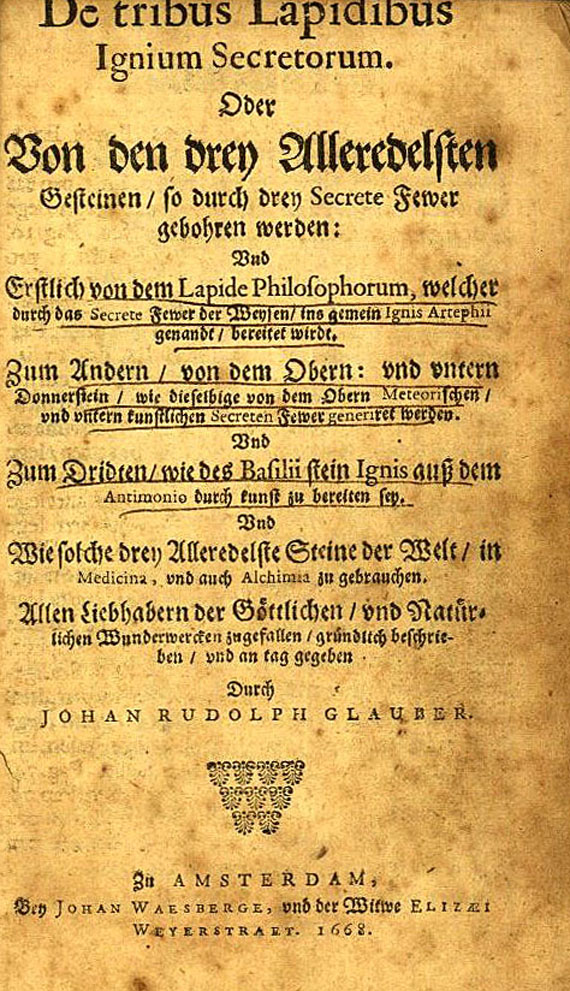 De tribus Lapidibus
Ignium Secretorum.
Oder
Von den drey Alleredelsten
Gesteinen / so durch drey Secrete Fewer
gebohren werden:
Vnd
Erstlich von dem Lapide Philosophorum, welcher
durch das Secrete Fewer der Weysen / ins gemein Ignis Artephii
genandt / bereitet wirdt.
Zum Andern / von dem Obern: vnd vntern
Donnerstein / wie dieselbige von dem Obern Meteorischen /
vnd vntern kunstlichen Secreten Fewer generiret werden.
Vnd
Zum Dridten / wie des Basilii stein Ignis auß dem
Antimonio durch kunst zu bereiten sey.
Vnd
Wie solche drey Alleredelste Steine der Welt / in
Medicina, vnd auch Alchimia zu gebrauchen.
Allen Liebhabern der Göttlichen / vnd Natür-
lichen Wunderwercken zugefallen / gründlich beschrie-
ben / vnd an tag gegeben
Durch
JOHAN RUDOLPH GLAUBER.
Zu AMSTERDAM,
Bey JOHAN WAESBERGE, vnd der Witwe ELIZÆI
WEYERSTRAET. 1668.